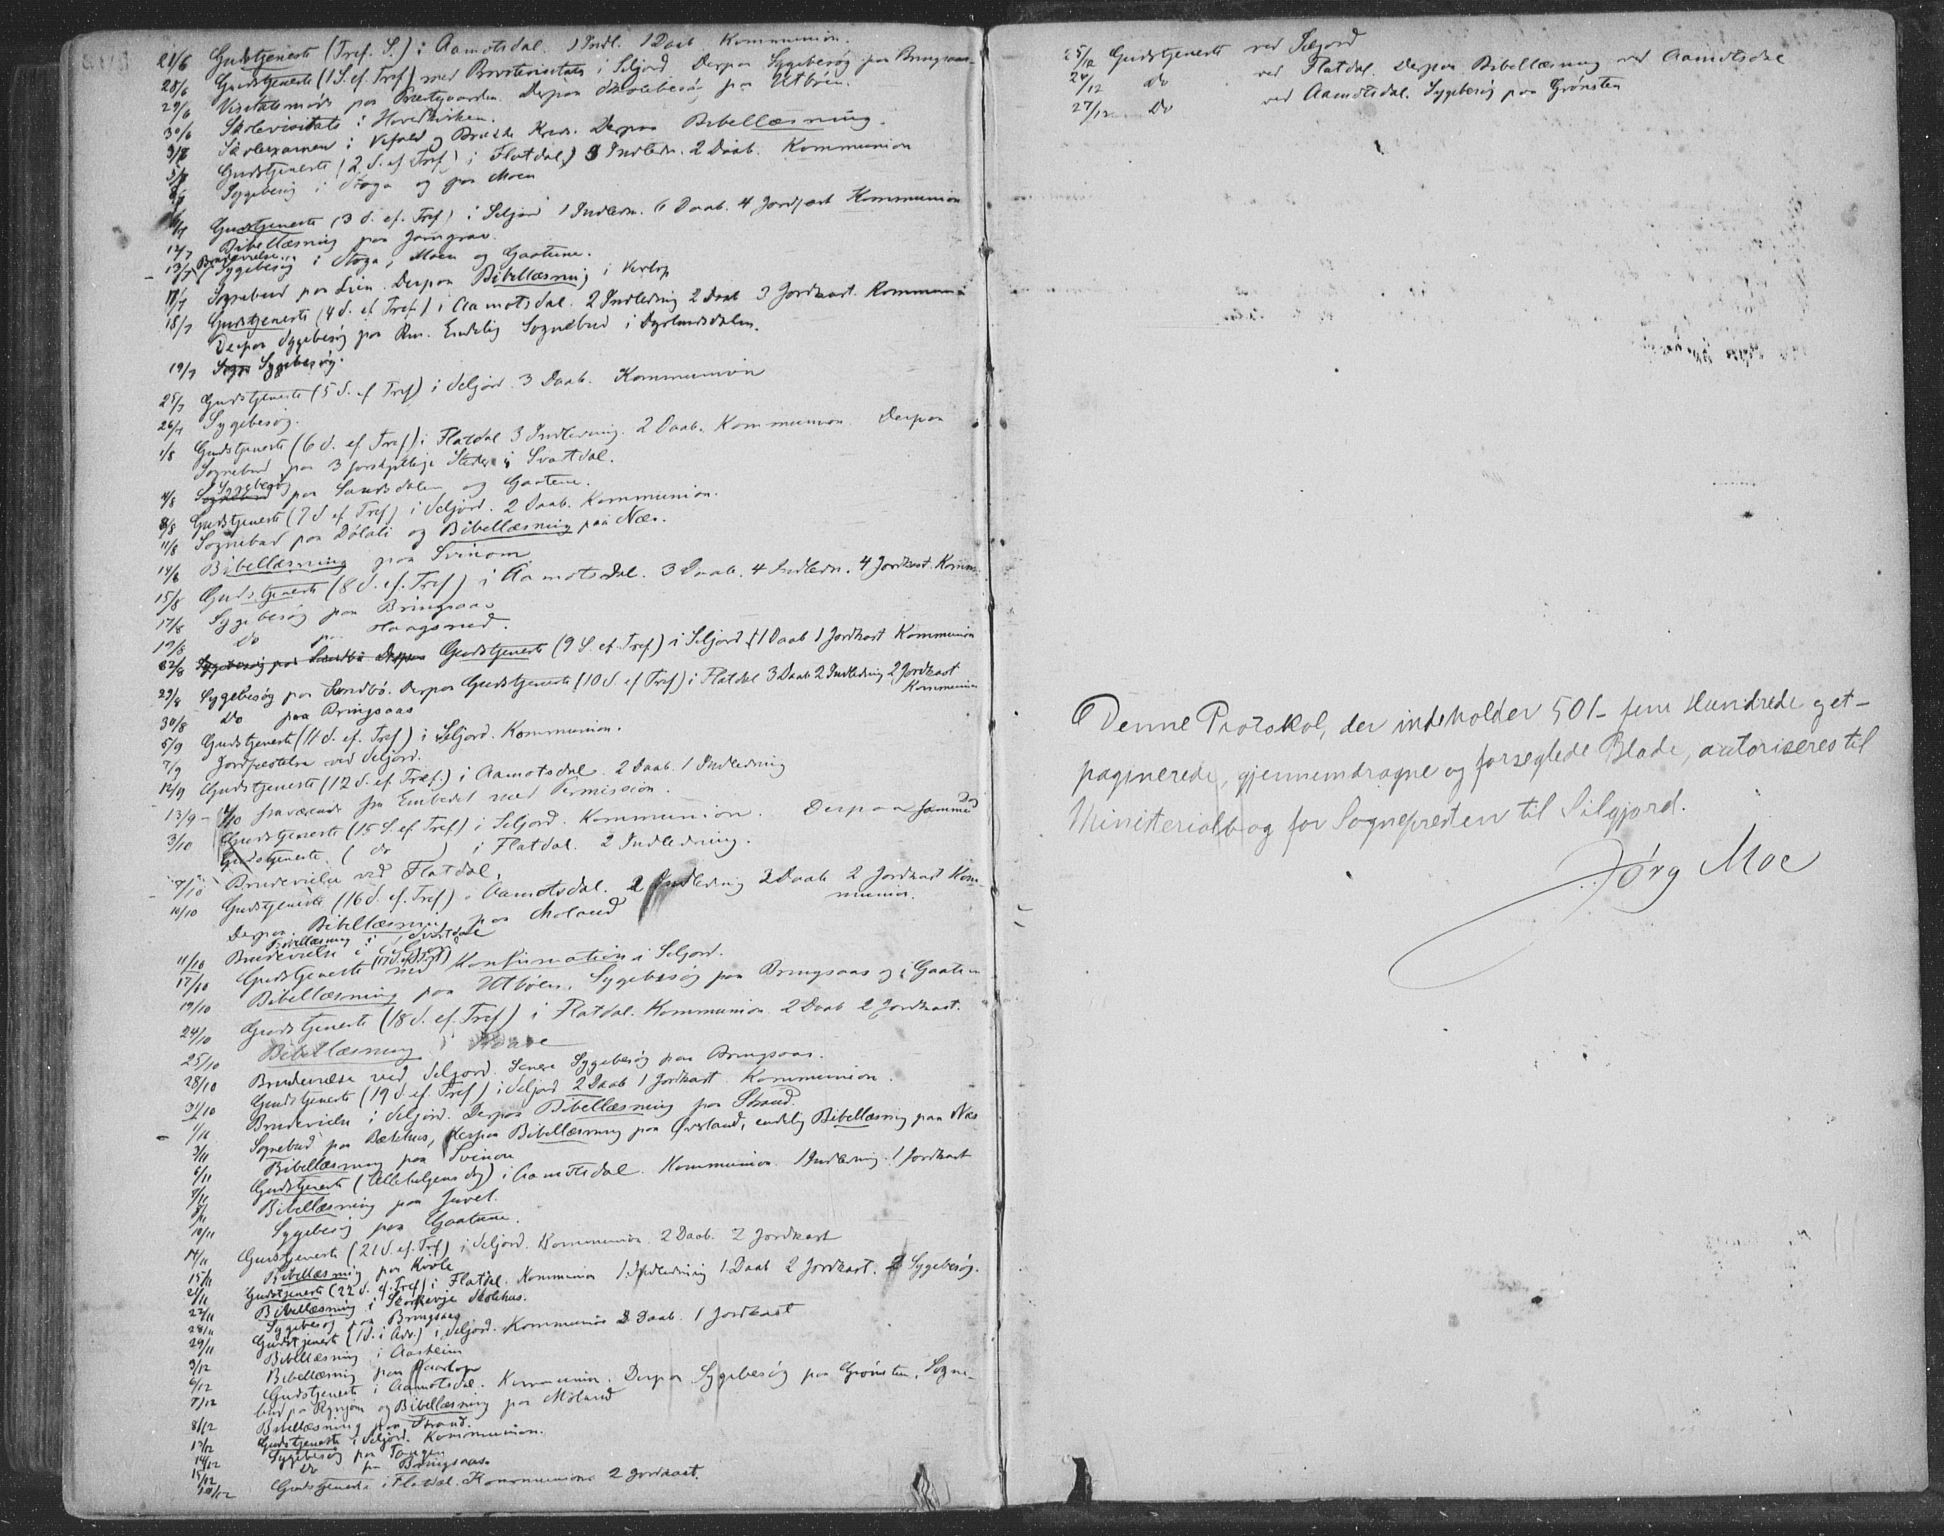 21/6 Gudstjeneste (Tref. S.) i Aamotsdal. 1 Indl. 1 Daab Kommunion.
28/6 Gudstjeneste (1 S. ef. Tref) med Provstevisitats i Seljord. Derpaa Sygebesøg paa Bringsaas
29/6 Visitatsmøde paa Præstgaarden. Derpaa Skolebesøg paa Utbøen.
30/6 Skolevisitats i Hovedkirken.
3/7 Skoleexamen i Vefald og Kreds. Derpaa Bibellæsning.
5/7 Gudstjeneste (2 S. ef. Tref) i Flatdal) 3 Indledn. 2 Daab. Kommunion
Sygebesøg i Stoga og paa Moen
Gudstjeneste (3 S. ef. Tref) i Seljord 1 Indledn. 6 Daab. 4 Jordfæst Kommunion
12/7 Bibellæsning paa Jorngrav.
13/7 Brudevielse. Sygebesøg i Stoga, Moen og Gaatune.
17/7 Sognebud paa Lien. Derpaa Bibellæsning i
18/7 Gudstjeneste (4 S. ef. Tref.) i Aamotsdal. 2 Indledning 2 Daab 3 Jordkast. Kommun
Derpaa Sygebesøg paa Endelig Sognebud i Dyrlandsdalen.
19/7 Sogn Sygebesøg.
25/7 Gudstjeneste (5 S. ef Tref) i Seljord. 3 Daab. Kommunion
26/7 Sygebesøg.
1/8 Gudstjeneste (6 S. ef. Tref) i Flatdal 3 Indledning. 2 Daab. Kommunion. Derpaa
Sognebud paa 3 forskjellige Steder i Svartdal.
4/8 Sognebud Sygebesøg paa Sandsdalen og Gaatune.
8/8 Gudstjeneste (7 S. ef. Tref) i Seljord. 2 Daab. Kommunion.
11/8 Sognebud paa Dölali og Bibellæsning paa Næs.
14/8 Bibellæsning paa Svinom
15/8 Gudstjeneste (8 S. ef. Tref) i Aamotsdal. 3 Daab. 4 Indledn. 4 Jordkast. Komm.
17/8 Sygebesøg paa Bringsaas
19/8 Do paa Haagsrud.
22/8 Sygebesøg paa Sundbö Derpaa Gudstjeneste (9 S. ef. Tref) i Seljord. 1 Daab 1 Jordkast Kommunion
29/8 Sygebesøg paa Sundbö. Derpaa Gudstjeneste (10 S ef Tref) i Flatdal 3 Daab 2 Indledning 2 Jordkast
Kommunion
30/8 Do paa Bringsaas
5/9 Gudstjeneste (11 S. ef. Tref) i Seljord. Kommunion.
7/9 Jordfæstelse ved Seljord.
12/9 Gudstjeneste (12 S. ef. Tref.) i Aamotsdal. 2 Daab. 1 Indledning
13/9 – 2/10 fraværende fra Embedet med Permission.
3/10 Gudstjeneste (15 S. ef Tref) i Seljord. Kommunion. Derpaa samme Dag
Gudstjeneste ( do ) i Flatdal. 2 Indledning.
7/10 Brudevielse ved Flatdal.
10/10 Gudstjeneste (16 S. ef. Tref) i Aamotsdal. 2 Indledning 2 Daab 2 Jordkast Kom-
munion.
Derpaa Bibellæsning paa Moland
Bibellæsning i Svartdal
11/10 Brudevielse i Seljord
17/10 Gudstjeneste (17 S. ef. Tref) med Konfirmation i Seljord.
19/10 Bibellæsning paa Utbøen. Sygebesøg paa Bringsaas og i Gaatun
24/10 Gudstjeneste (18 S. ef. Tref) i Flatdal. Kommunion. 2 Daab 2 Jordkast.
25/10 Bibellæsning i
28/10 Brudevielse ved Seljord. Senere Sygebesøg paa Bringsaas.
31/10 Gudstjeneste (19 S. ef. Tref) i Seljord 2 Daab 1 Jordkast. Kommunion.
1/11 Brudevielse i Seljord. Derpaa Bibellæsning paa Strand.
3/11 Sognebud paa Bækhus, derpaa Bibellæsning paa Øverland, endelig Bibellæsning paa Næs
6/11 Bibellæsning paa Svinom
7/11 Gudstjeneste (Allehelgens dag) i Aamotsdal. Kommunion. 1 Indledning. 1 Jordkast
8/11 Bibellæsning paa Juvet.
10/11 Sygebesøg paa Gaatune.
14/11 Gudstjeneste (21 S. ef. Tref) i Seljord. Kommunion. 2 Daab. 2 Jordkast
15/11 Bibellæsning paa Kivle
21/11 Gudstjeneste (22 S. ef. Tref) i Flatdal. Kommunion 1 Indledning 1 Daab 2 Jordkast. 2 Sygebesøg.
22/11 Bibellæsning i Skolehus.
28/11 Sygebesøg paa Bringsaas
29/11 Gudstjeneste (1 S. i Adv.) i Seljord. Kommunion 3 Daab. 1 Jordkast
3/12 Bibellæsning i Aasheim
6/12 Bibellæsning paa
7/12 Gudstjeneste i Aamotsdal. Kommunion. Derpaa Sygebesøg paa Grønsten. Sogne-
bud paa og Bibellæsning paa Moland
8/12 Bibellæsning paa Strand.
13/12 Gudstjeneste i Seljord. Kommunion.
14/12 Sygebesøg paa Tangen
15/12 Do paa Bringsaas
Gudstjeneste i Flatdal. Kommunion 2 Jordkast.
25/12 Gudstjeneste ved Seljord
26/12 Do ved Flatdal. Derpaa Bibellæsning ved Aamotsdal
27/12 Do ved Aamotsdal. Sygebesøg paa Grønsten
Denne Protokol, der indeholder 501– fem Hundrede og et –
paginerede, gjennemdragne og forseglede Blade, autoriseres til
Ministerialbog for Sognepresten til Silgjord.
Jörg Moe